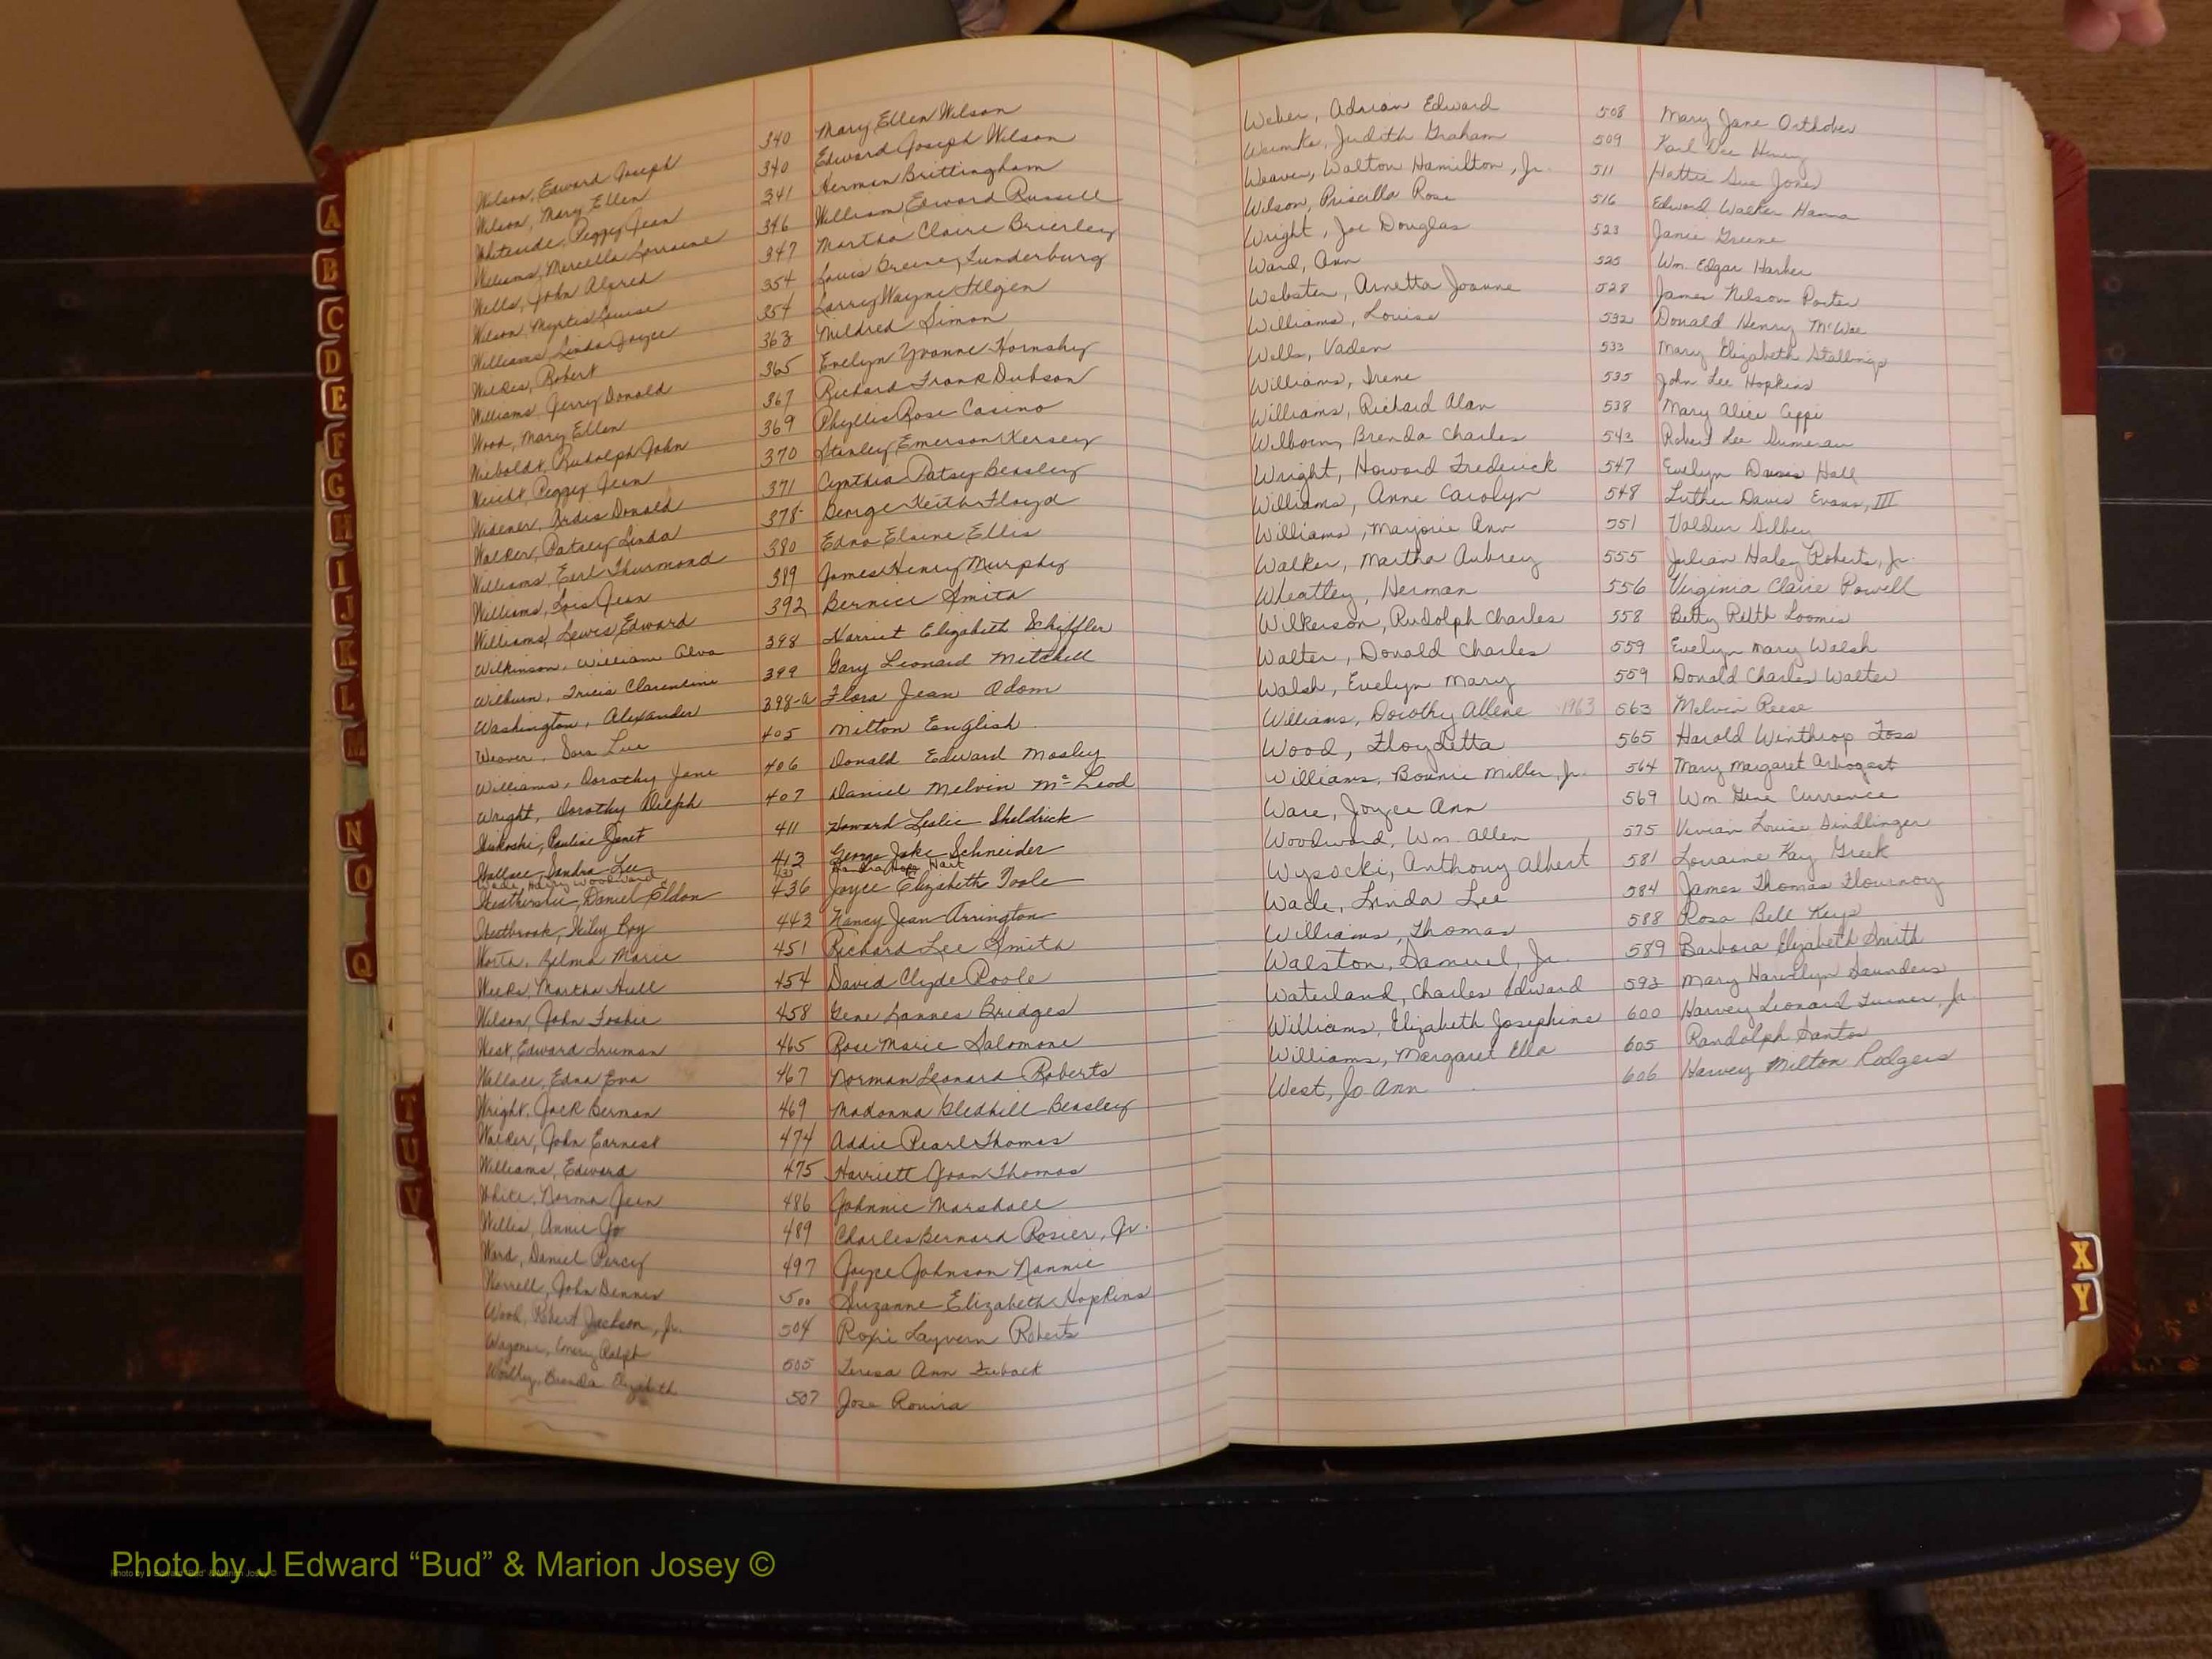 Wilson, Edward Joseph 340 Mary Ellen Wilson
Wilson, Mary Ellen 340 Edward Joseph Wilson
Whiteside, Peggy Jean 341 Herman Brittingham
Williams, Marcella Lorraine 346 William Edward Russell
Wells, John Alfred 347 Martha Claire Brierley
Wilson, Myrtis Louise 354 Louis Greiner Funderburg
Williams, Linda Joyce 354 Larry Wayne Ilgen
Wilkes, Robert 363 Mildred Simon
Williams, Jerry Donald 365 Evelyn Yvonne Hornsby
Wood, Mary Ellen 367 Richard Frank Dobson
Rudolph John 369 Phyllis Rose Casino
Peggy Jean 370 Stanley Emerson Kersey
Widener, Ardis Donald 371 Cynthia Patsy Beasley
Walker, Patsy Linda 378 George Keith Floyd
Williams, Earl Thurmond 380 Edna Elaine Ellis
Williams, Lois Jean 389 James Henry Murphy
Williams, Lewis Edward 392 Bernice Smith
Wilkinson, William Alva 398 Harriet Elizabeth Schiffler
Wilburn, Tricia Clarentine 399 Gary Leonard Mitchell
Washington, Alexander 398-a Flora Jean Adom
Weaver, Sara Lue 405 Milton English
Williams, Dorothy Jane 406 Donald Edward Mosley
Wright, Dorothy Dilph 407 Daniel Melvin McLeod
Pauline Janet 411 Howard Leslie Sheldrick
Wallace, Sandra Lee 413 George Jake Schneider
Wade, Harry Woodward 435 Sandra Hope Hart
Weatherslee, Daniel Eldon 436 Joyce Elizabeth Toole
Westbrook, Wiley Roy 443 Nancy Jean Arrington
Worth, Belma Marie 451 Richard Lee Smith
Weeks, Martha Hull 454 David Clyde Poole
Wilson, John Foster 458 Gene Lannes Bridges
West, Edward Truman 465 Rose Marie Salomone
Wallace, Edna Eva 467 Norman Leonard Roberts
Wright, Jack Berman 469 Madonna Gledhill Beasley
Walker, John Earnest 474 Addie Pearl Thomas
Williams, Edward 475 Harriett Joan Thomas
White, Norma Jean 486 Johnnie Marshall
Willis, Annie Jo 489 Charles Bernard Rosier, Jr.
Ward, Daniel Percy 497 Joyce Johnson Nannie
Worrell, John Dennis 500 Suzanne Elizabeth Hopkins
Wood, Robert Jackson, Jr. 504 Roxie Layvern Roberts
Wagoner, Emery Ralph 505 Teresa Ann
Brenda Elizabeth 507 Jose Rovira
Weber, Adrian Edward 508 Mary Jane Orthober
Judith Graham 509 Karl Dee Henry
Weaver, Walton Hamilton, Jr. 511 Hattie Sue Jones
Wilson, Priscilla Rose 516 Edward Walker Hanna
Wright, Joe Douglas 523 Janie Greene
Ward, Ann 525 Wm. Edgar Harker
Webster, Arnetta Joanne 528 James Nelson Porter
Williams, Louise 532 Donald Henry McVae
Wells, Vaden 533 Mary Elizabeth Stallings
Williams, Irene 535 John Lee Hopkins
Williams, Richard Alan 538 Mary Alice Ceppi
Wilborn, Brenda Charles 543 Robert Lee Sumerau
Wright, Howard Frederick 547 Evelyn Davis Hall
Williams, Anne Carolyn 548 Luther Davis Evans, III
Williams, Marjorie Ann 551 Valdur Silbey
Walker, Martha Aubrey 555 Julian Haley Roberts, Jr.
Wheatley, Herman 556 Virginia Claire Powell
Wilkerson, Rudolph Charles 558 Betty Ruth Loomis
Walter, Donald Charles 559 Evelyn Mary Walsh
Walsh, Evelyn Mary 559 Donald Charles Walter
Williams, Dorothy Allene 1963 563 Melvin Reese
Wood, Floydetta 565 Harold Winthrop Foss
Williams, Bonnie Miller, Jr. 564 Mary Margaret Arbogast
Ware, Joyce Ann 569 Wm Gene Currence
Woodward, Wm. Allen 575 Vivian Louise Sindlinger
Wysocki, Anthony Albert 581 Lorraine Kay Greek
Wade, Linda Lee 584 James Thomas Flournoy
Williams, Thomas 588 Rosa Bell Keys
Walston, Samuel, Jr. 589 Barbara Elizabeth Smith
Waterland, Charles Edward 593 Mary Harolyn Saunders
Williams, Elizabeth Josephine 600 Harvey Leonard Turner, Jr.
Williams, Margaret Ella 605 Randolph Santos
West, Jo Ann 606 Harvey Milton Rodgers
A
B
C
D
E
F
G
H
I
J
K
L
M
N
O
Q
T
U
V
X
Y
Photo by J Edward “Bud” & Marion Josey ©
Photo by J Edward "Bud" & Marion Josey ©